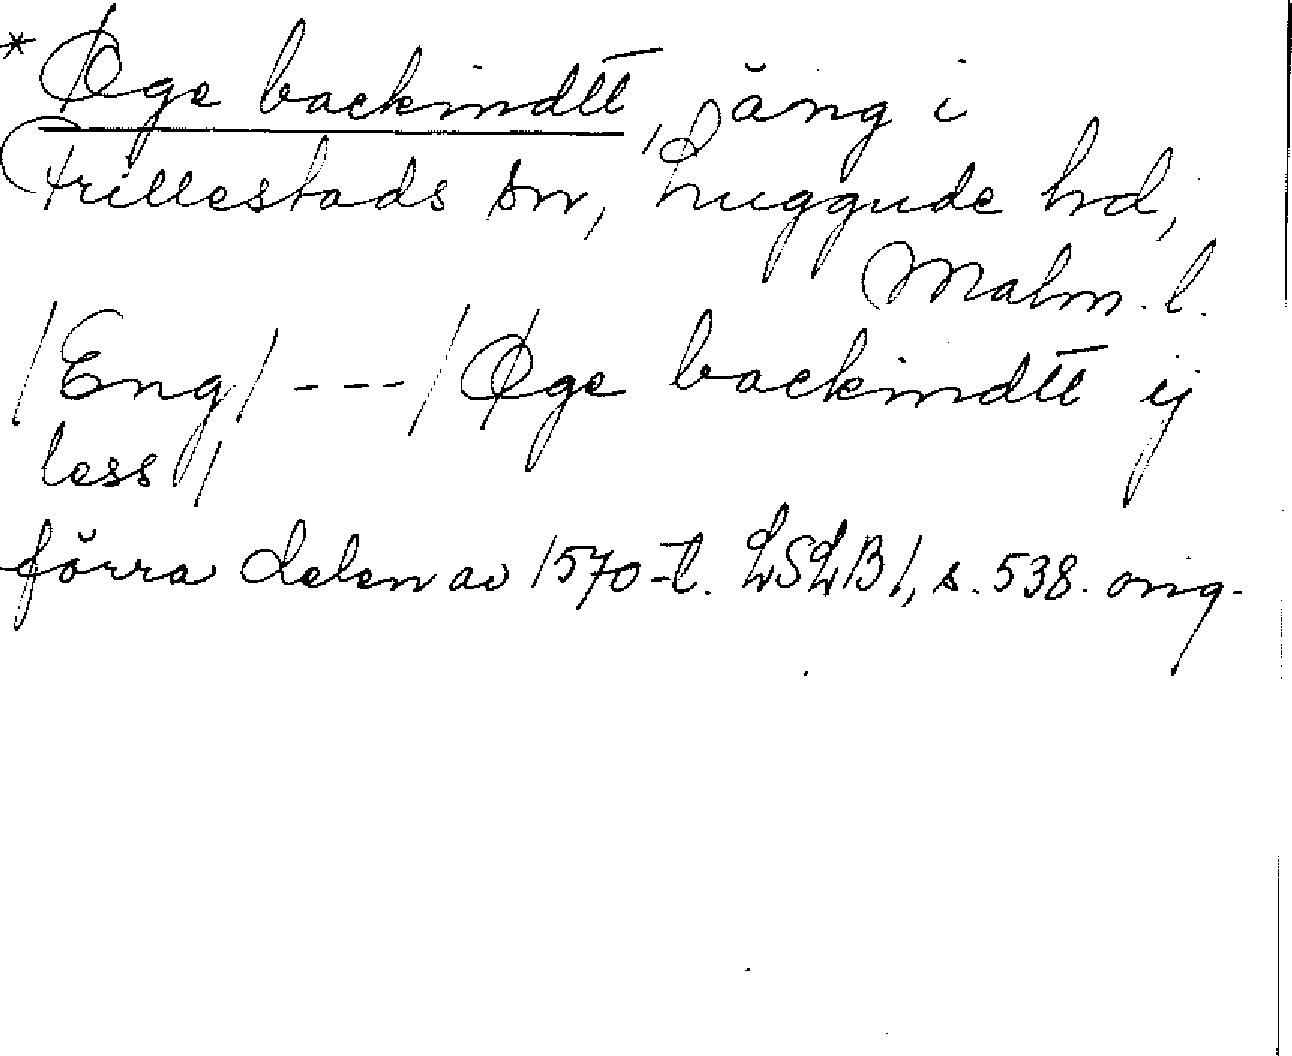 *Øge backindtt, äng i
Frillestads sn, Luggude hd,
Malm. l.
/Eng/ - - - / Øge backindtt ij
less /
förra delen av 1570-t. LSLB 1, s. 538. orig.